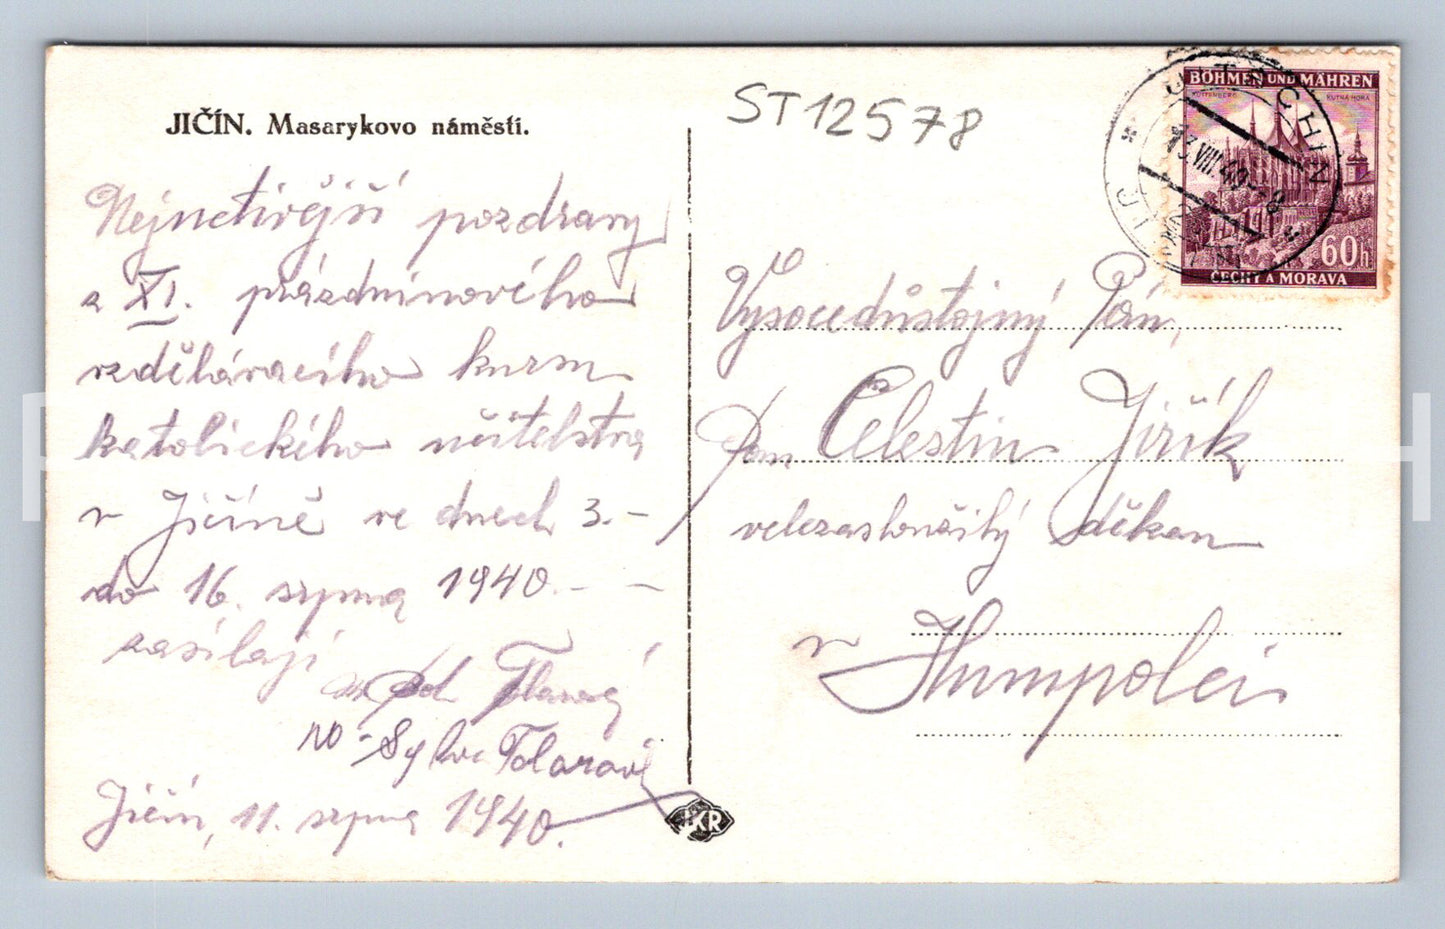 JIČÍN. Masarykovo náměstí.
ST12578
BÖHMEN UND MÄHREN
KUTTENBERG KUTNÁ HORA
60h
ČECHY A MORAVA
JITSCHIN
13.VIII 40-8
JIČ
Nejuctivější pozdravy
z XI. prázdninového
vzdělávacího kursu
katolického učitelstva
v Jičíně ve dnech 3.-
do 16. srpna 1940.- -
zasílají
Sylva Tolarová
Jičín, 11. srpna 1940.
Vysocedůstojný Pán,
Pan Celestin Jiřík
velezasloužilý děkan
v Humpolci
KR